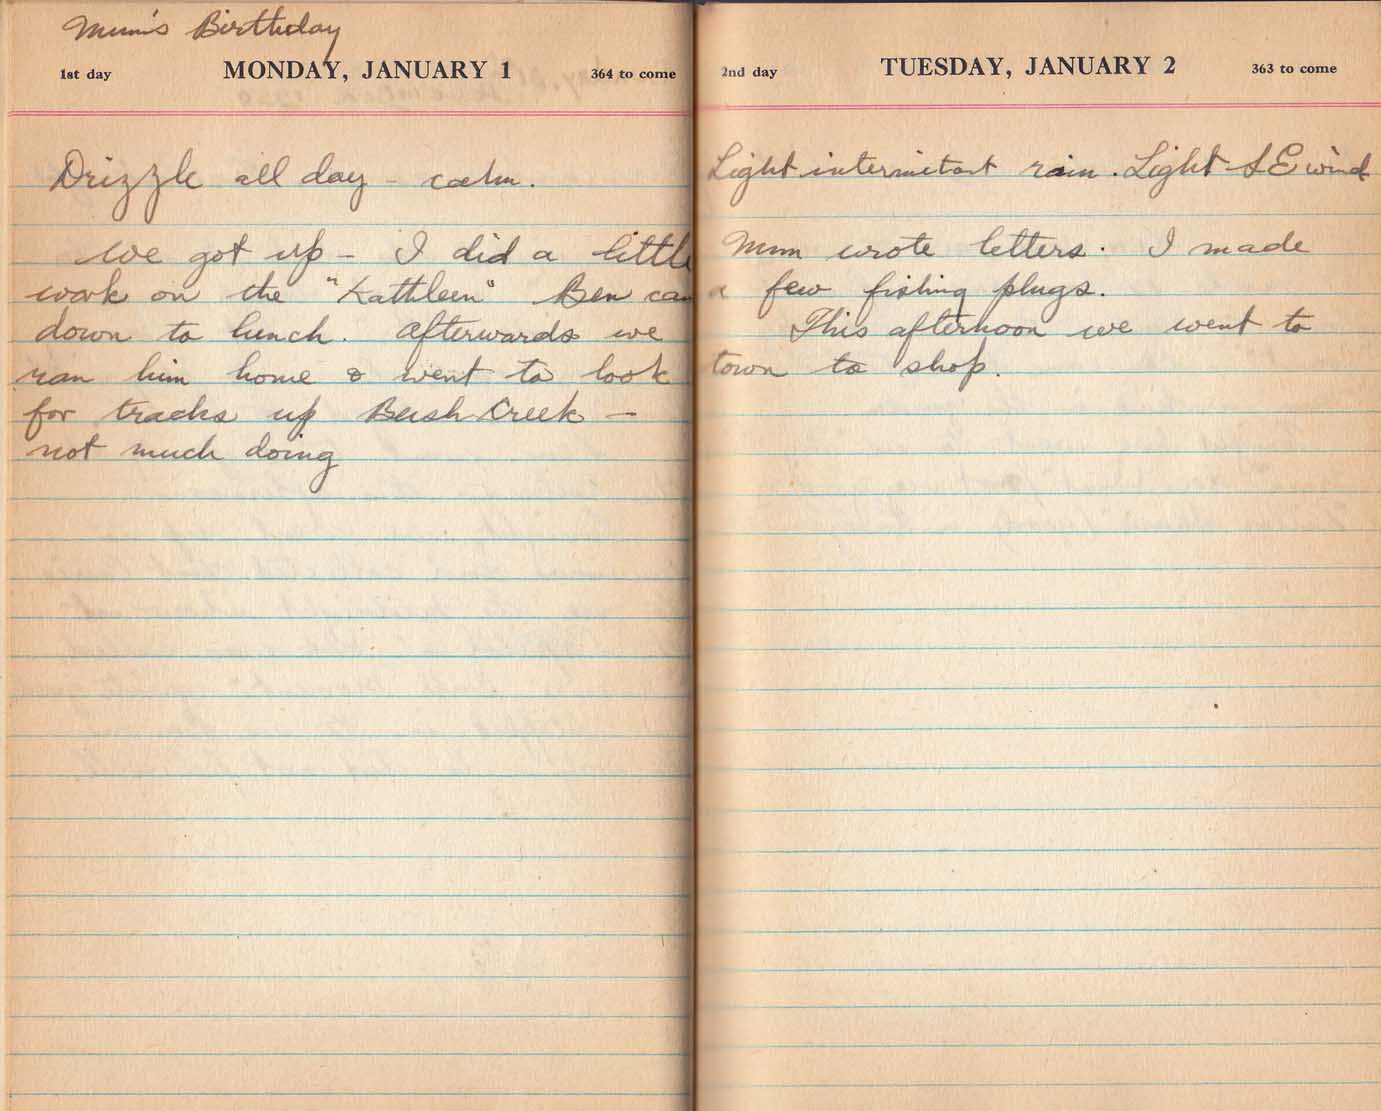 Mum's Birthday
1st day MONDAY, JANUARY 1 364 to come
Drizzle all day - calm.
We got up - I did a little
work on the "Kathleen" Ben cam
down to lunch. Afterwards we
ran him home & went to look
for tracks up Bush Creek -
not much doing
2nd day TUESDAY, JANUARY 2 363 to come
Light intermitant rain. Light SE wind
Mum wrote letters. I made
a few fishing plugs.
This afternoon we went to
town to shop.